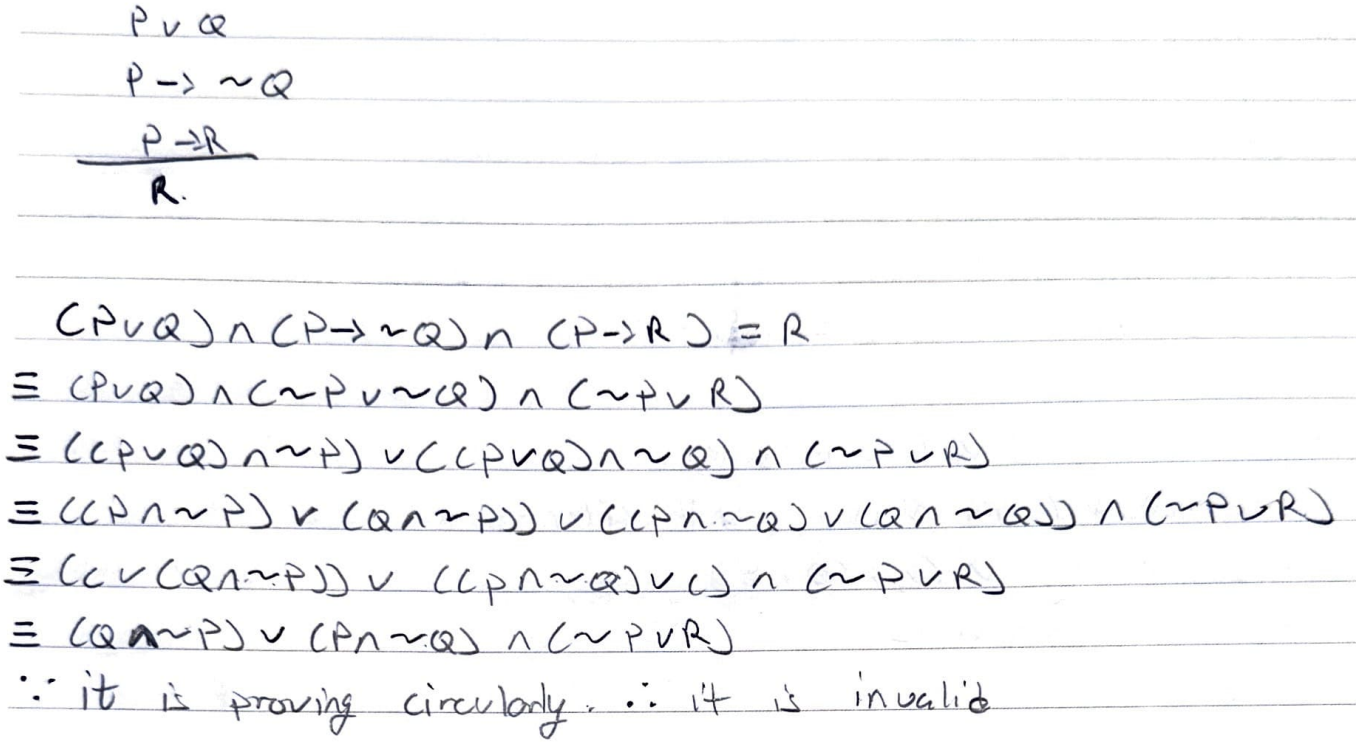 P ∨ Q
P -> ~Q
P -> R
R.
(P∨Q) ∧ (P -> ~Q) ∧ (P -> R) = R
≡ (P∨Q) ∧ (~P ∨ ~Q) ∧ (~P ∨ R)
≡ ((P∨Q) ∧ ~P) ∨ ((P∨Q) ∧ ~Q) ∧ (~P ∨ R)
≡ ((P ∧ ~P) ∨ (Q ∧ ~P)) ∨ ((P ∧ ~Q) ∨ (Q ∧ ~Q)) ∧ (~P ∨ R)
≡ (c ∨ (Q ∧ ~P)) ∨ ((P ∧ ~Q) ∨ c) ∧ (~P ∨ R)
≡ (Q ∧ ~P) ∨ (P ∧ ~Q) ∧ (~P ∨ R)
∵ it is proving circularly. ∴ it is invalid